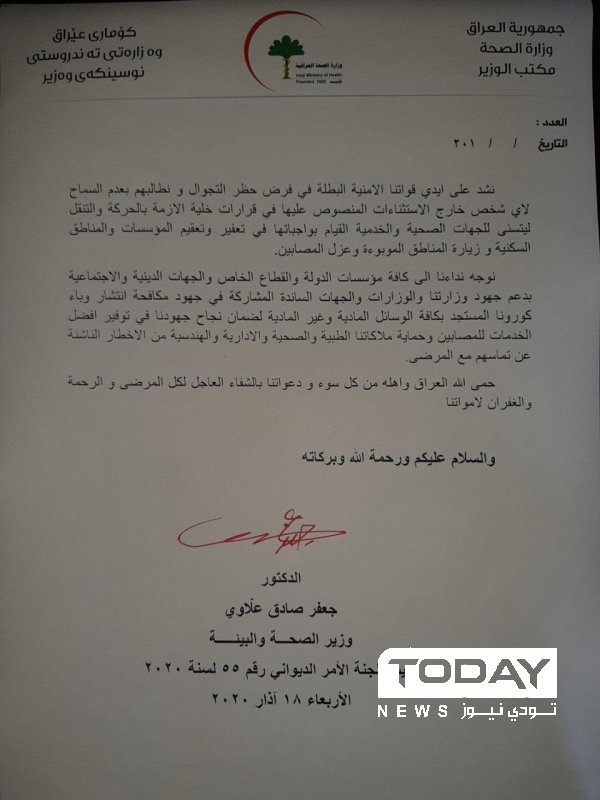 جمهورية العراق
وزارة الصحة
مكتب الوزير
وزارة الصحة العراقية
Iraqi Ministry of Health
Founded 1920
كۆماری عێراق
وه زاره‌تی ته ندروستی
نوسینگه‌ی وه‌زیر
العدد :
التاريخ / / ٢٠١
نشد على ايدي قواتنا الامنية البطلة في فرض حظر التجوال و نطالبهم بعدم السماح
لاي شخص خارج الاستثناءات المنصوص عليها في قرارات خلية الازمة بالحركة والتنقل
ليتسنى للجهات الصحية والخدمية القيام بواجباتها في تعفير وتعقيم المؤسسات والمناطق
السكنية و زيارة المناطق الموبوءة وعزل المصابين.
نوجه نداءنا الى كافة مؤسسات الدولة والقطاع الخاص والجهات الدينية والاجتماعية
بدعم جهود وزارتنا والوزارات والجهات الساندة المشاركة في جهود مكافحة انتشار وباء
كورونا المستجد بكافة الوسائل المادية وغير المادية لضمان نجاح جهودنا في توفير افضل
الخدمات للمصابين وحماية ملاكاتنا الطبية والصحية والادارية والهندسية من الاخطار الناشئة
عن تماسهم مع المرضى.
حمى الله العراق واهله من كل سوء و دعواتنا بالشفاء العاجل لكل المرضى و الرحمة
والغفران لامواتنا
والسلام عليكم ورحمة الله وبركاته
الدكتور
جعفر صادق علّاوي
وزير الصحـــة والبيئــــة
لجنة الأمر الديواني رقم ٥٥ لسنة ٢٠٢٠
الأربعاء ١٨ آذار ٢٠٢٠
TODAY
NEWS تودي نيوز